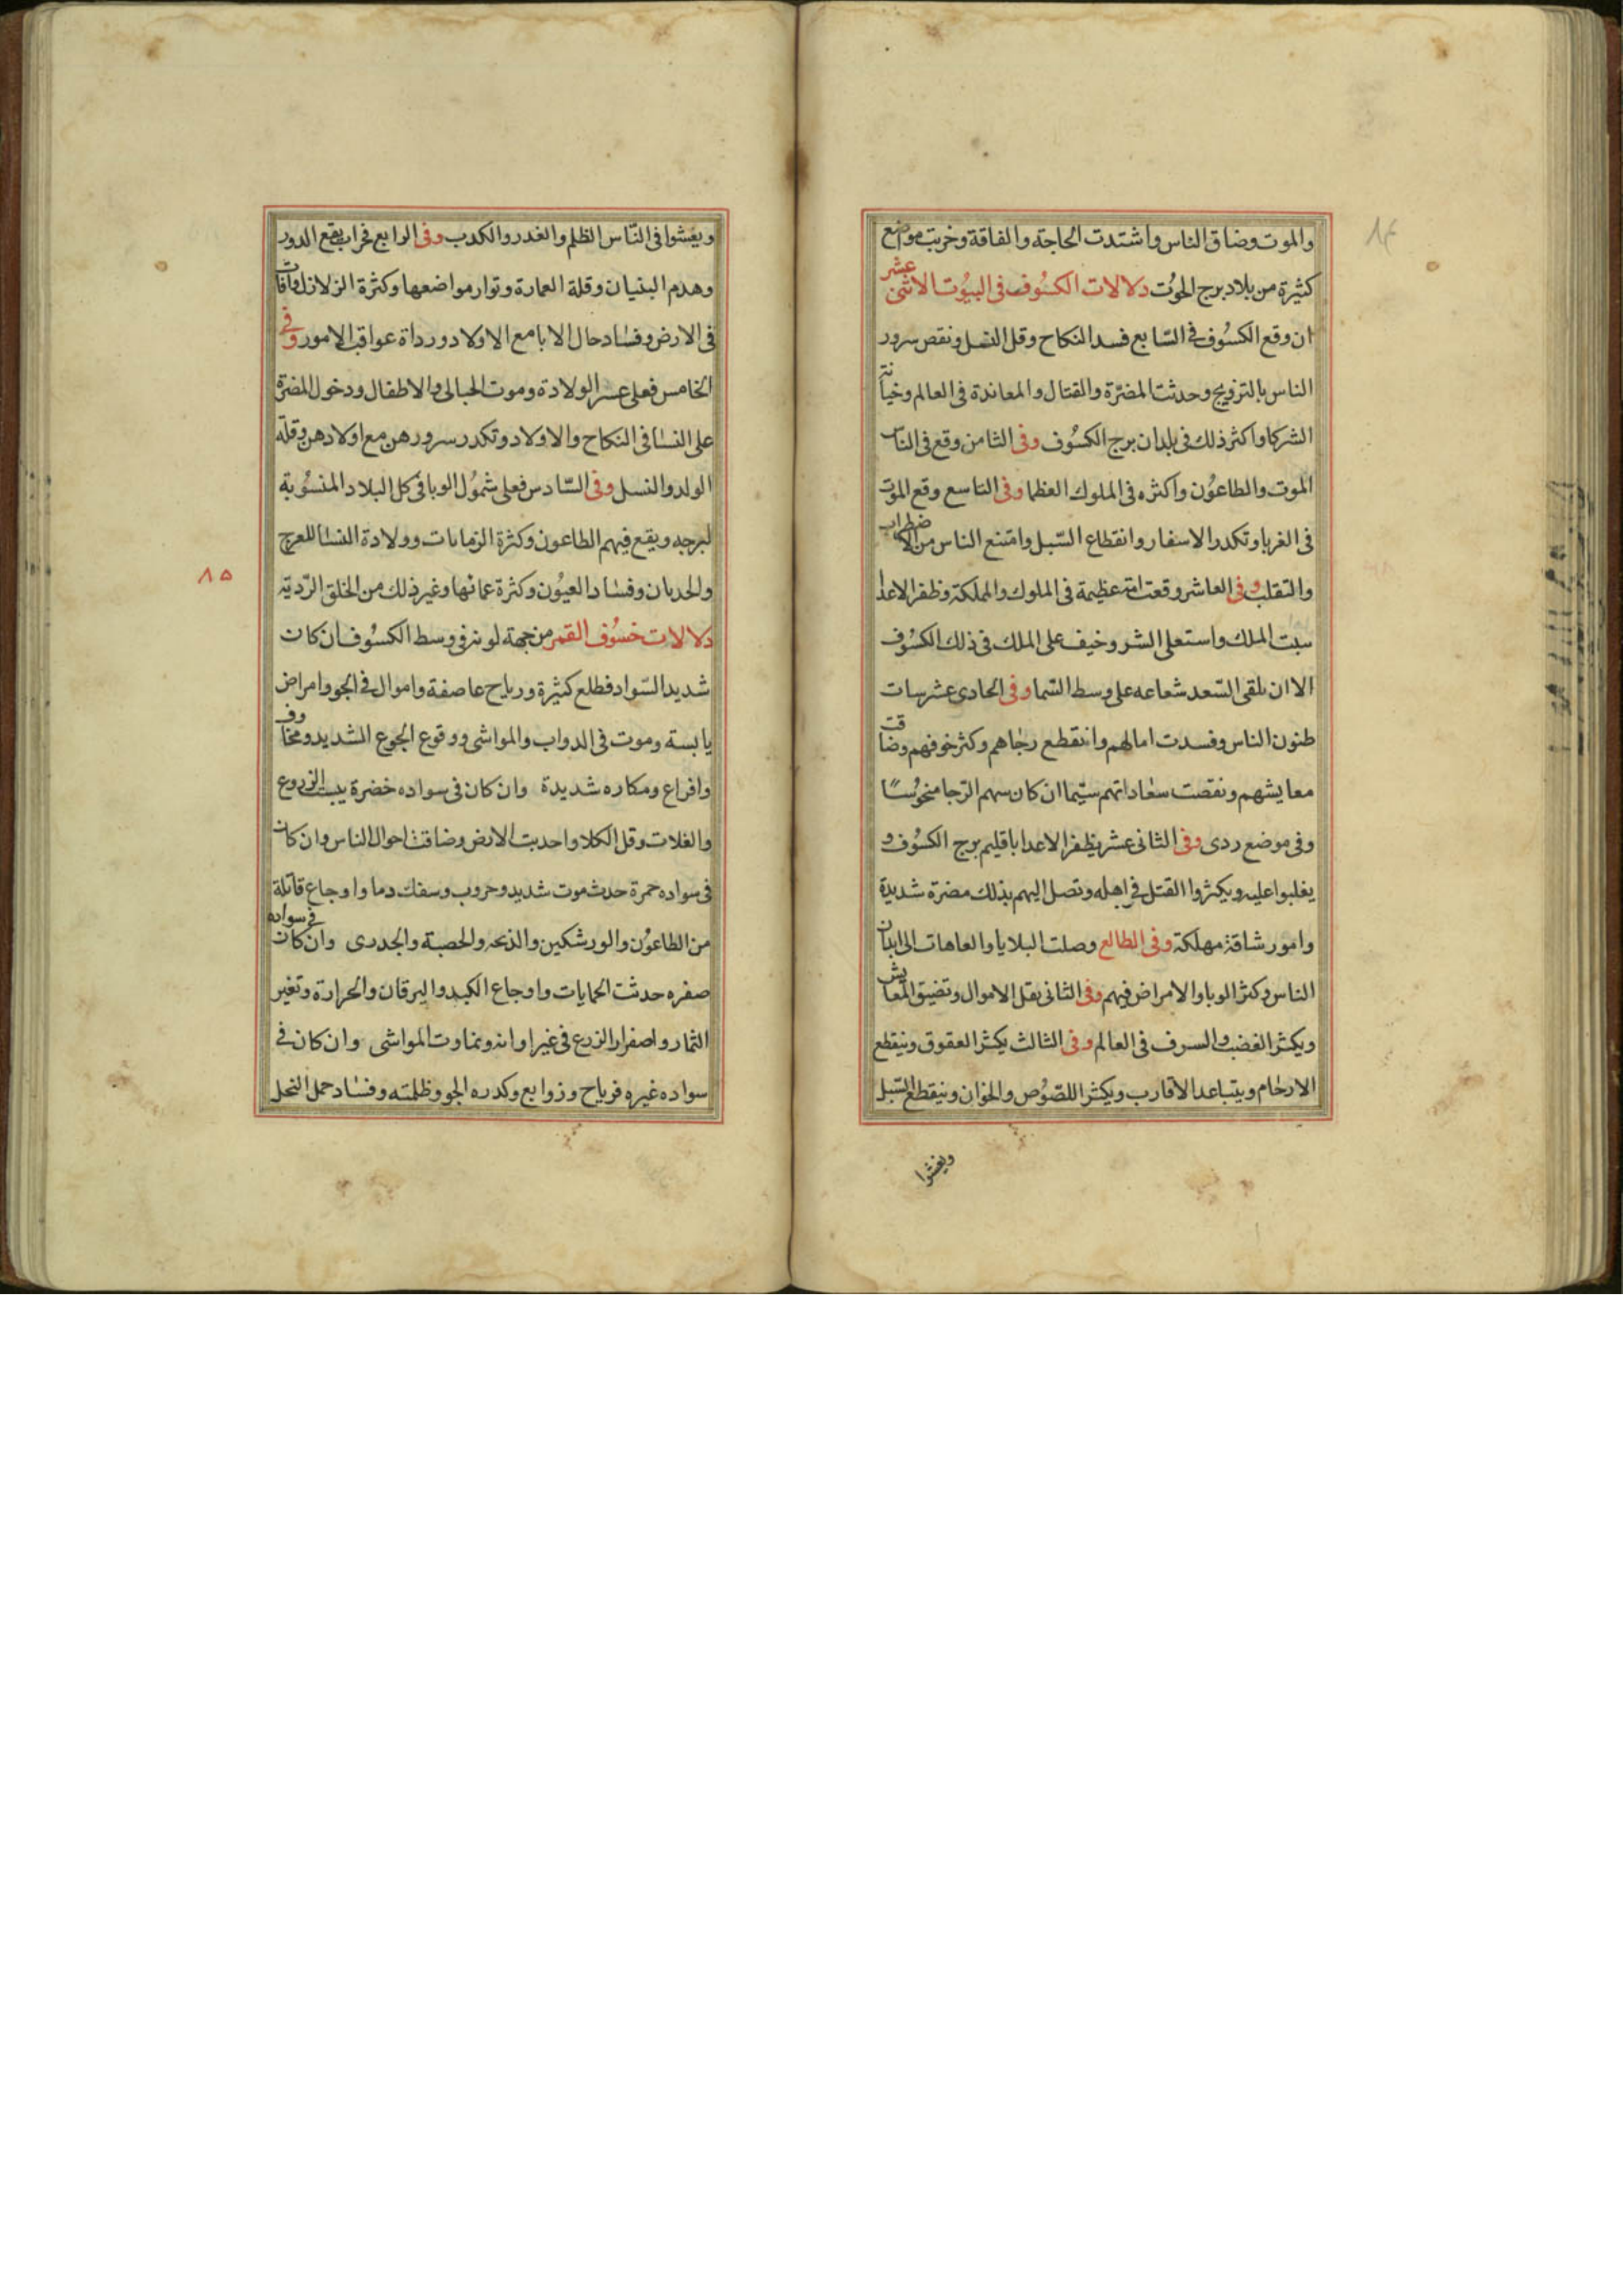 والموت وضاق الناس واشتدت الحاجة والفاقة وخربت مواضع
كثيرة من بلاد برج الحوت دلالات الكسوف في البيوت الاثنى عشر
ان وقع الكسوف في السابع فسد النكاح وقل النسل ونقص سرور
الناس بالتزويج وحدثت المضرة والقتال والمعاندة في العالم وخيانة
الشركا واكثر ذلك في بلدان برج الكسوف وفى الثامن وقع في الناس
الموت والطاعون واكثره في الملوك العظما وفى التاسع وقع الموت
في الغربا وتكدر الاسفار وانقطاع السبل وامتنع الناس من الاضطراب
والتقلب وفى العاشر وقعت عظيمة في الملوك والمملكة وظفر الاعدا
الملك واستعلى الشر وخيف على الملك في ذلك الكسوف
الا ان يلقى السعد شعاعه على وسط السما وفى الحادى عشر سات
ظنون الناس وفسدت امالهم وانقطع رجاهم وكثر خوفهم وضاقت
معايشهم ونقصت سعاداتهم سيما ان كان سهم الرجا منحوسًا
وفى موضع ردى وفى الثانى عشر يظفر الاعدا باقليم برج الكسوف و
يغلبوا عليه ويكثروا القتل في اهله وتصل اليهم بذلك مضرة شديدة
وامور شاقة مهلكة وفى الطالع وصلت البلايا والعاهات الى ابدان
الناس وكثر الوبا والامراض فيهم وفى الثانى يقل الاموال وتضيق المعايش
ويكثر الغضب والسرف في العالم وفى الثالث يكثر العقوق وينقطع
الارحام ويتباعد الاقارب ويكثر اللصوص والخوان وينقطع السبل
ويفشوا
ويفشوا في الناس الظلم والغدر والكدب وفى الرابع فخراب يقع الدور
وهدم البنيان وقلة العمارة وتوار مواضعها وكثرة الزلازل وافات
في الارض وفساد حال الابا مع الاولاد ورداة عواقب الامور وفى
الخامس فعلى عسر الولادة وموت الحبالى والاطفال ودخول المضرة
على النسا في النكاح والاولاد وتكدر سرورهن مع اولادهن وقلة
الولد والنسل وفى السادس فعلى شمول الوبا في كل البلاد المنسوبة
لبرجه ويقع فيهم الطاعون وكثرة الزمانات وولادة النسا للعرج
والحدبان وفساد العيون وكثرة عماتها وغير ذلك من الخلق الردية
٨٥
دلالات خسوف القمر من جهة لونه في وسط الكسوف ان كان
شديد السواد فطلع كثيرة ورياح عاصفة واموال في الجو وامراض
يابسة وموت في الدواب والمواشى ووقوع الجوع الشديد ومخاوف
وافراع ومكاره شديدة وان كان في سواده خضرة يبست الزروع
والغلات وقل الكلا واجدبت الارض وضاقت احوال الناس وان كان
في سواده حمرة حدث موت شديد وحروب وسفك دما واوجاع قاتلة
من الطاعون والورشكين والذبحه والحصبة والجدرى وان كان في سواده
صفره حدثت الحمايات واوجاع الكبد واليرقان والحرارة وتغير
الثمار واصفرار الزرع في غير اوانه وتماوت المواشى وان كان في
سواده غبره فرياح وزوابع وكدره الجو وظلمته وفساد حمل النخل